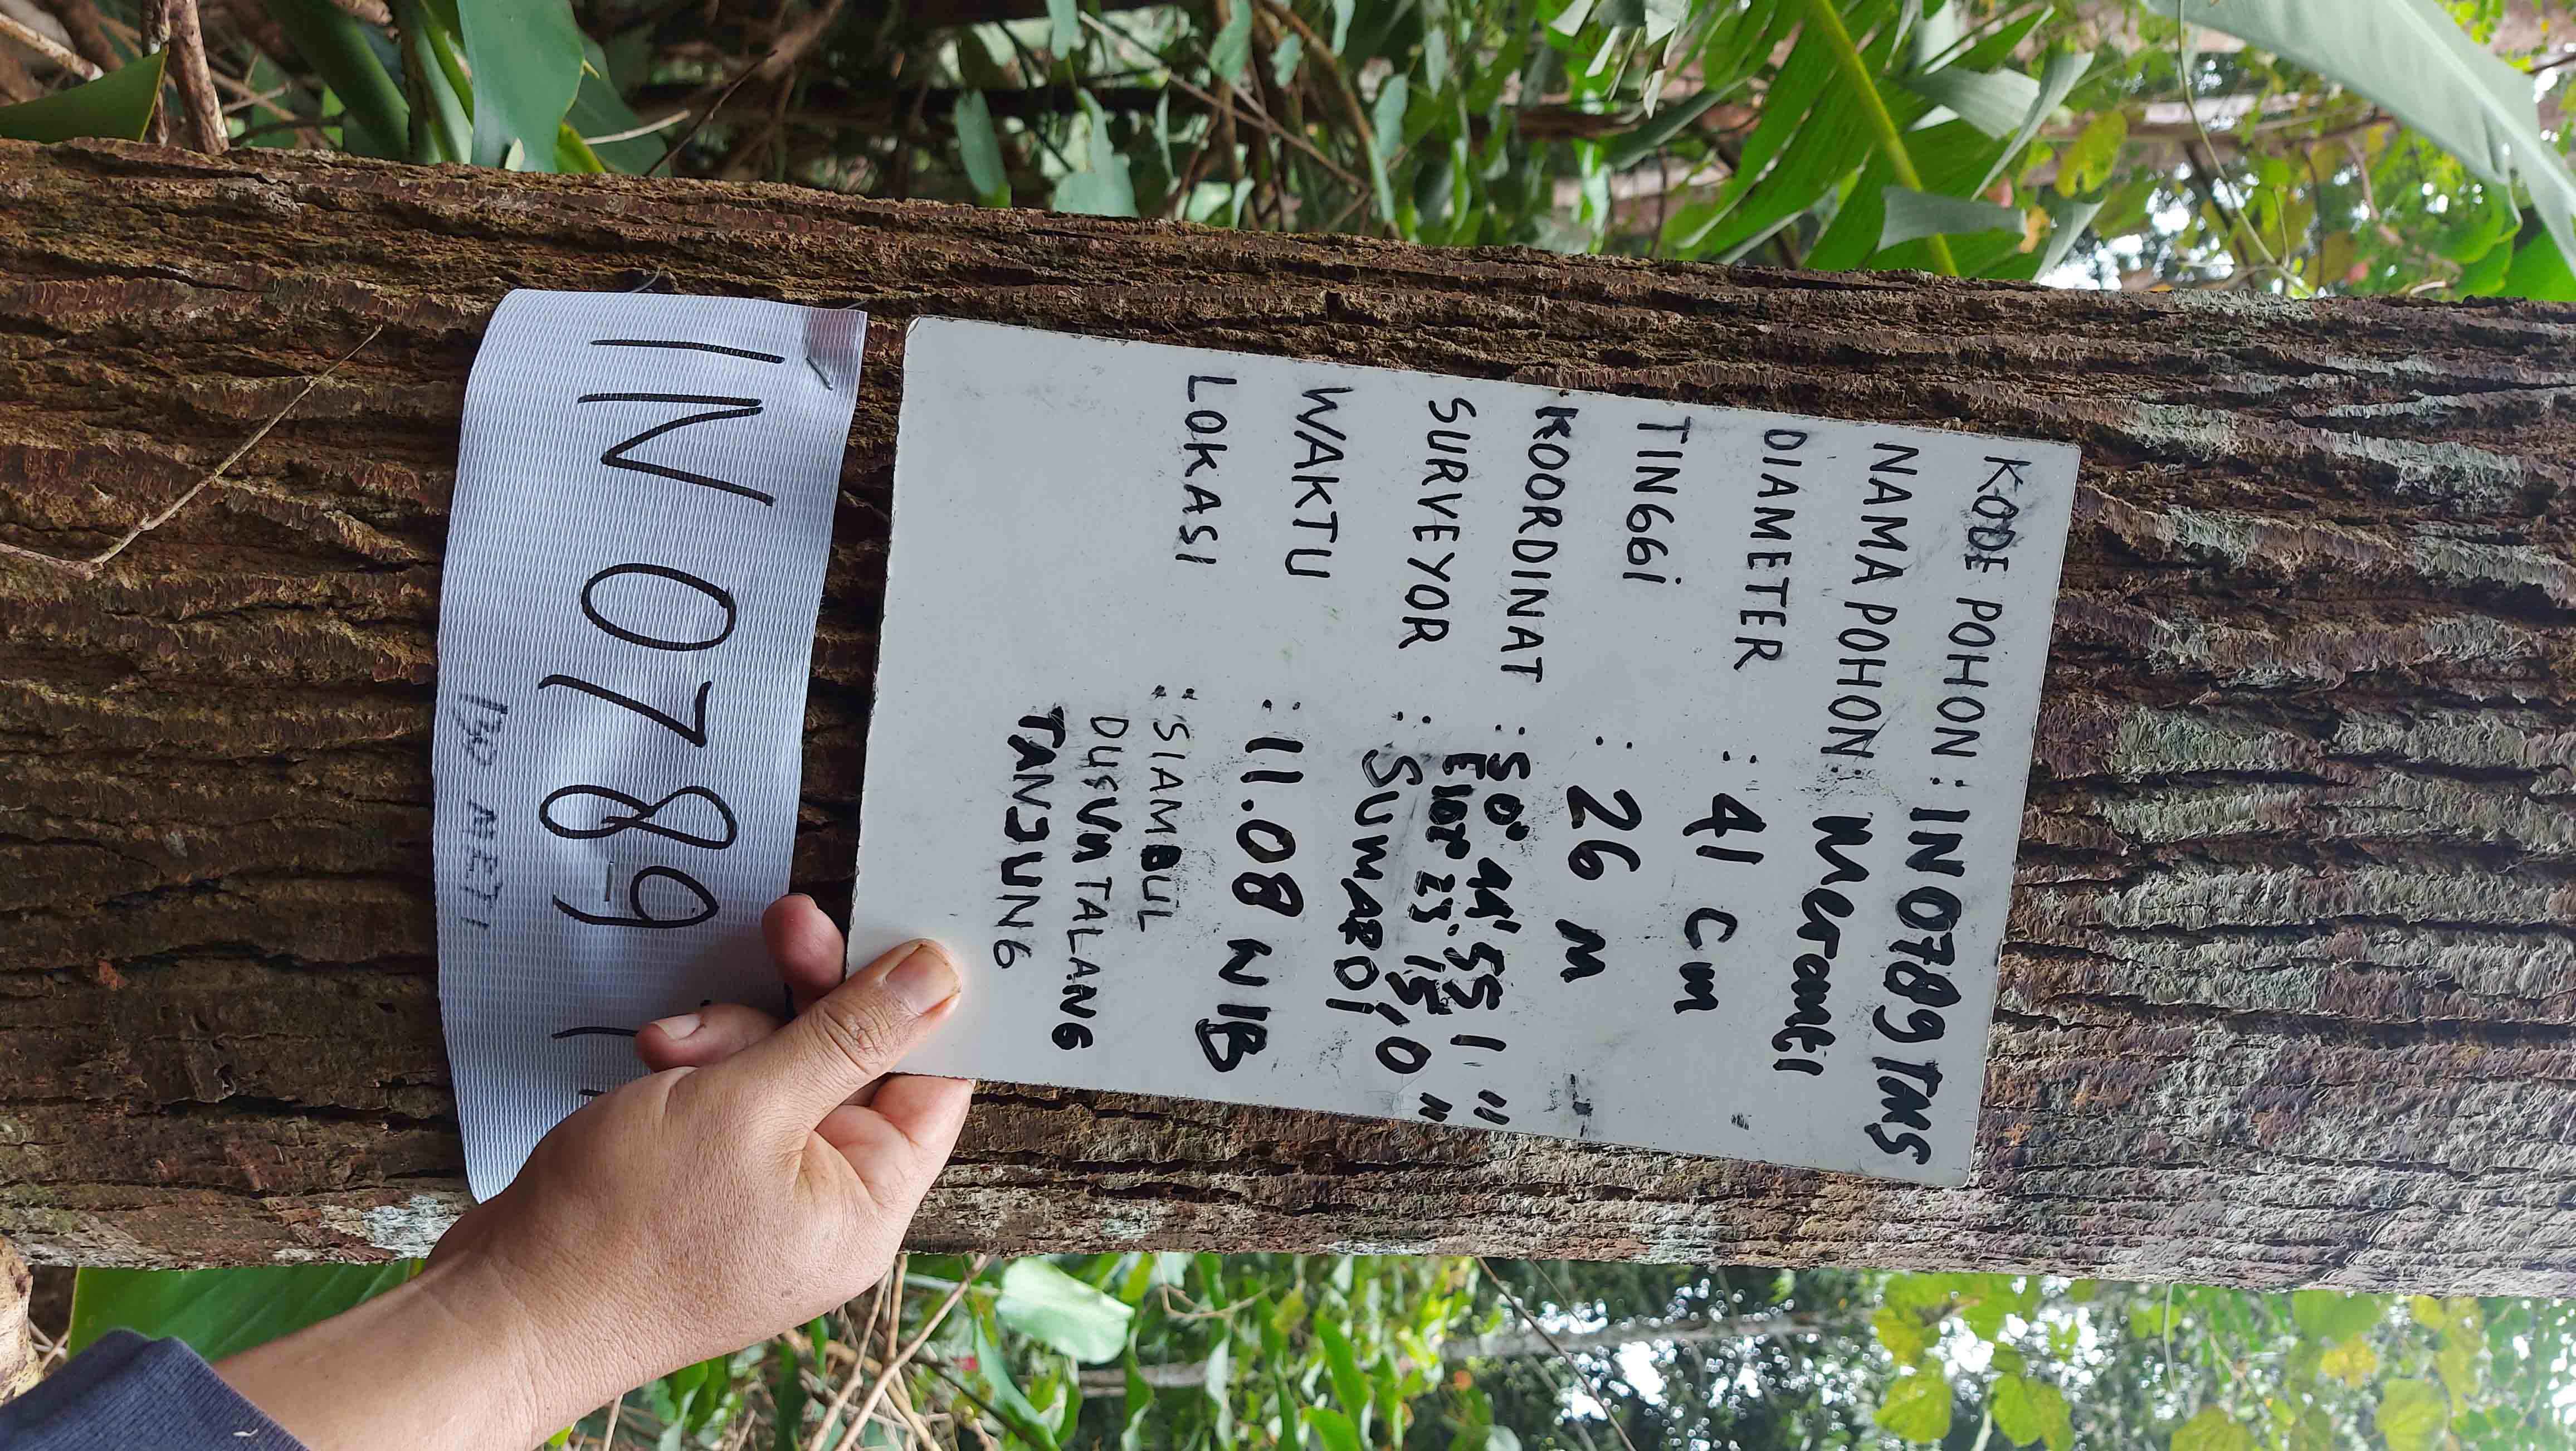 KODE POHON : IN 0789 TMS
NAMA POHON : Meranti
DIAMETER : 41 cm
TINGGi : 26 M
KOORDINAT : S 0° 44' 55 1 "
E 102° 23' 15,0 "
SURVEYOR : SUMARDi
WAKTU : 11.08 WIB
LOKASI : SIAMBUL
DUSUn TALANG
TANJUNG
IN 0789
130 METI